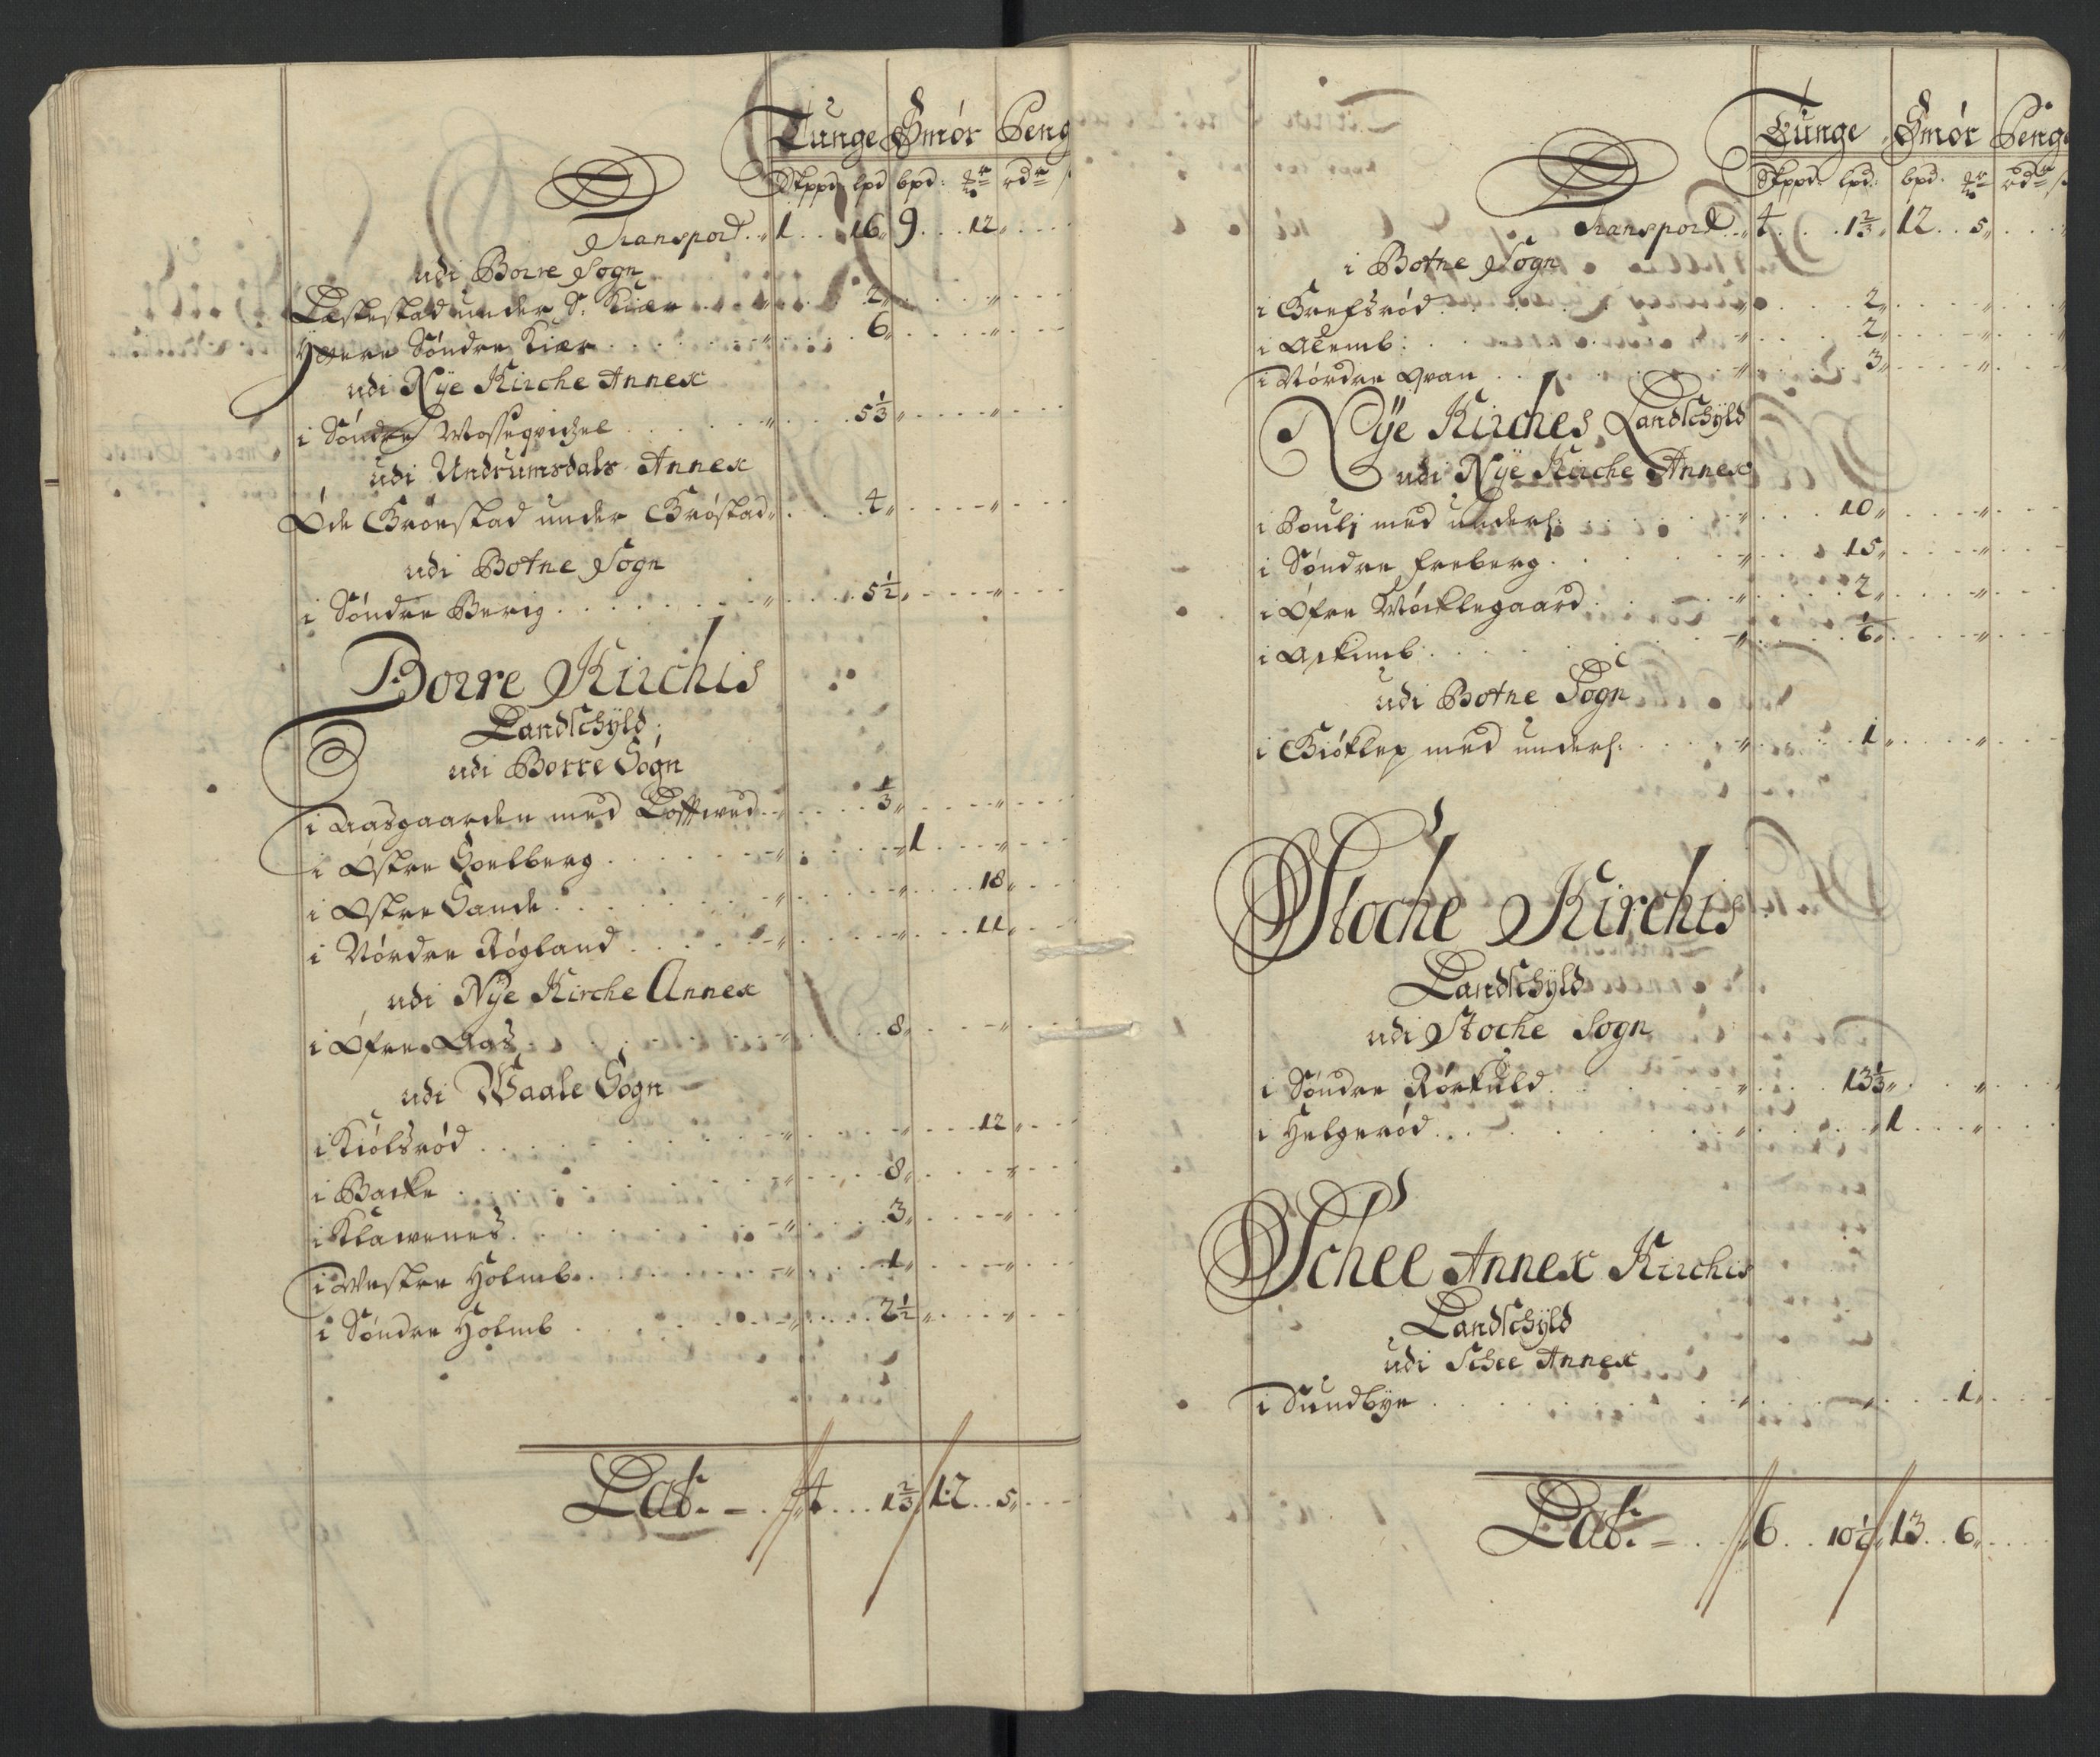 Tunge Smór Peng
Skppd lpd bpd: mr rdr
Transport. 1 16 9 12
udi Borre Sogn
Læstestad under S: Kiær 2
Ÿttere Sóndre Kiær 6
udi Nÿe Kirche Annex
i Sóndre Mosseqvichel 5 1/3
udi Undrumsdals Annex
Øde Grónstad under Gróstad 4
udi Botne Sogn
i Sóndre Berig 5 1/2
Borre Kirchis
Landschÿld;
udi Borre Sogn
i Aasgaarden med Loftwed 1/3
i Østre Soelberg 1
i Østre Sande 18
i Nórdre Rógland 11
udi Nÿe Kirche Annex
i Øfre Aas 8
udi Waale Sogn
i Kiólsród 12
i Backe 8
i Klawenes 3
i Westre Holmb 1
i Sóndre Holmb 2 1/2
Lat: 4 1 2/3 12 5
Tunge Smór Penge
Skppd: lpd: bpd: mr rdr
Transport 4 1 2/3 12 5
i Botne Sogn
i Grefsród 2
i Alemb: 2
i Nórdre Qvan 3
Nÿe Kirches Landschÿld
udi Nÿe Kirche Annex
i Boulj med unders: 10
i Sóndre Freberg 15
i Øfre Mócklegaard 2
i Askimb: 1/6
udi Botne Sogn
i Giøklep med unders: 1
Stoche Kirchis
Landschÿld
udi Stoche Sogn
i Sóndre Rórkuld 13 1/3
i Helgeród 1
Schee Annex Kirchis
Landschÿld
udi Schee Annex
i Sundbÿe 1
Lat: 6 10 1/6 13 6